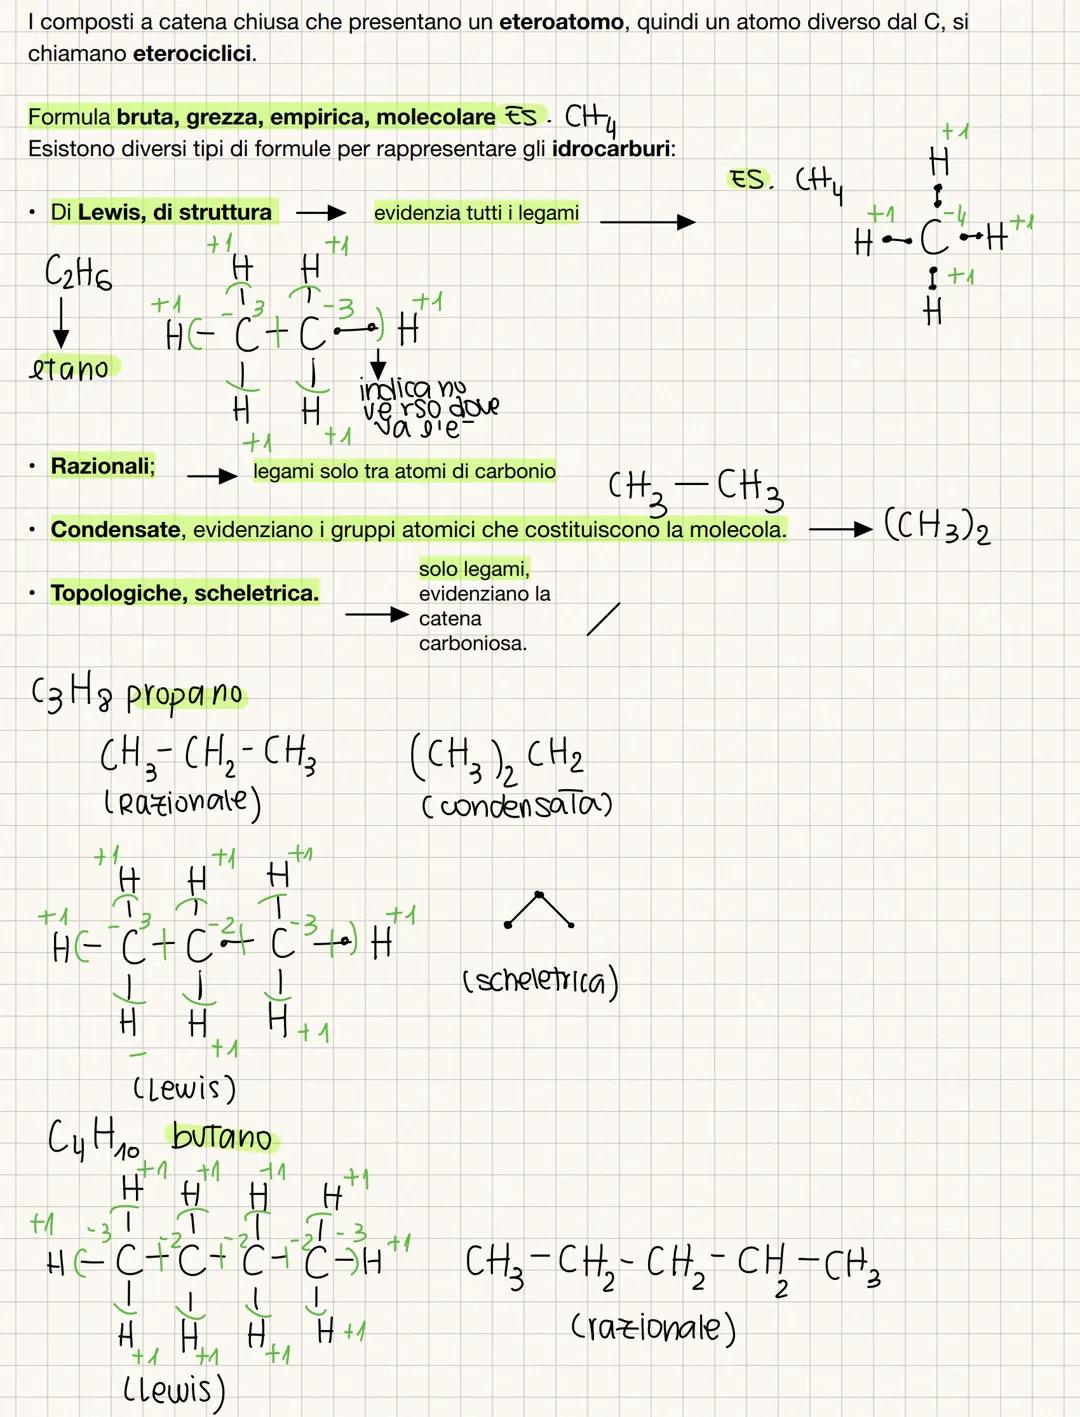 I composti a catena chiusa che presentano un eteroatomo, quindi un atomo diverso dal C, si
chiamano eterociclici.
Formula bruta, grezza, empirica, molecolare ES. CH4
Esistono diversi tipi di formule per rappresentare gli idrocarburi:
ES. CH4
+1
H
+1 -4 +1
H C H
+1
H
• Di Lewis, di struttura → evidenzia tutti i legami →
C2H6
etano
+1 +1
H H
+1 -3 -3 +1
H(- C + C -) H
H H
+1 +1
indicano
verso dove
va l'e-
• Razionali; → legami solo tra atomi di carbonio CH3 — CH3
• Condensate, evidenziano i gruppi atomici che costituiscono la molecola. → (CH3)2
• Topologiche, scheletrica. → solo legami,
evidenziano la
catena
carboniosa.
C3H8 propano
CH3 - CH2 - CH3 (CH3)2 CH2
(Razionale) (condensata)
+1 +1 +1
H H H
+1 -3 -2 -3 +1
H(- C + C + C +) H
H H H +1
- +1
(Lewis)
(scheletrica)
C4H10 butano
+1 +1 +1 +1
H H H H
+1 -3 -2 -2 -2 -3 +1
H(- C + C + C + C -)H
H H H H +1
+1 +1 +1
(Lewis)
CH3 - CH2 - CH2 - CH2 - CH3
(razionale)